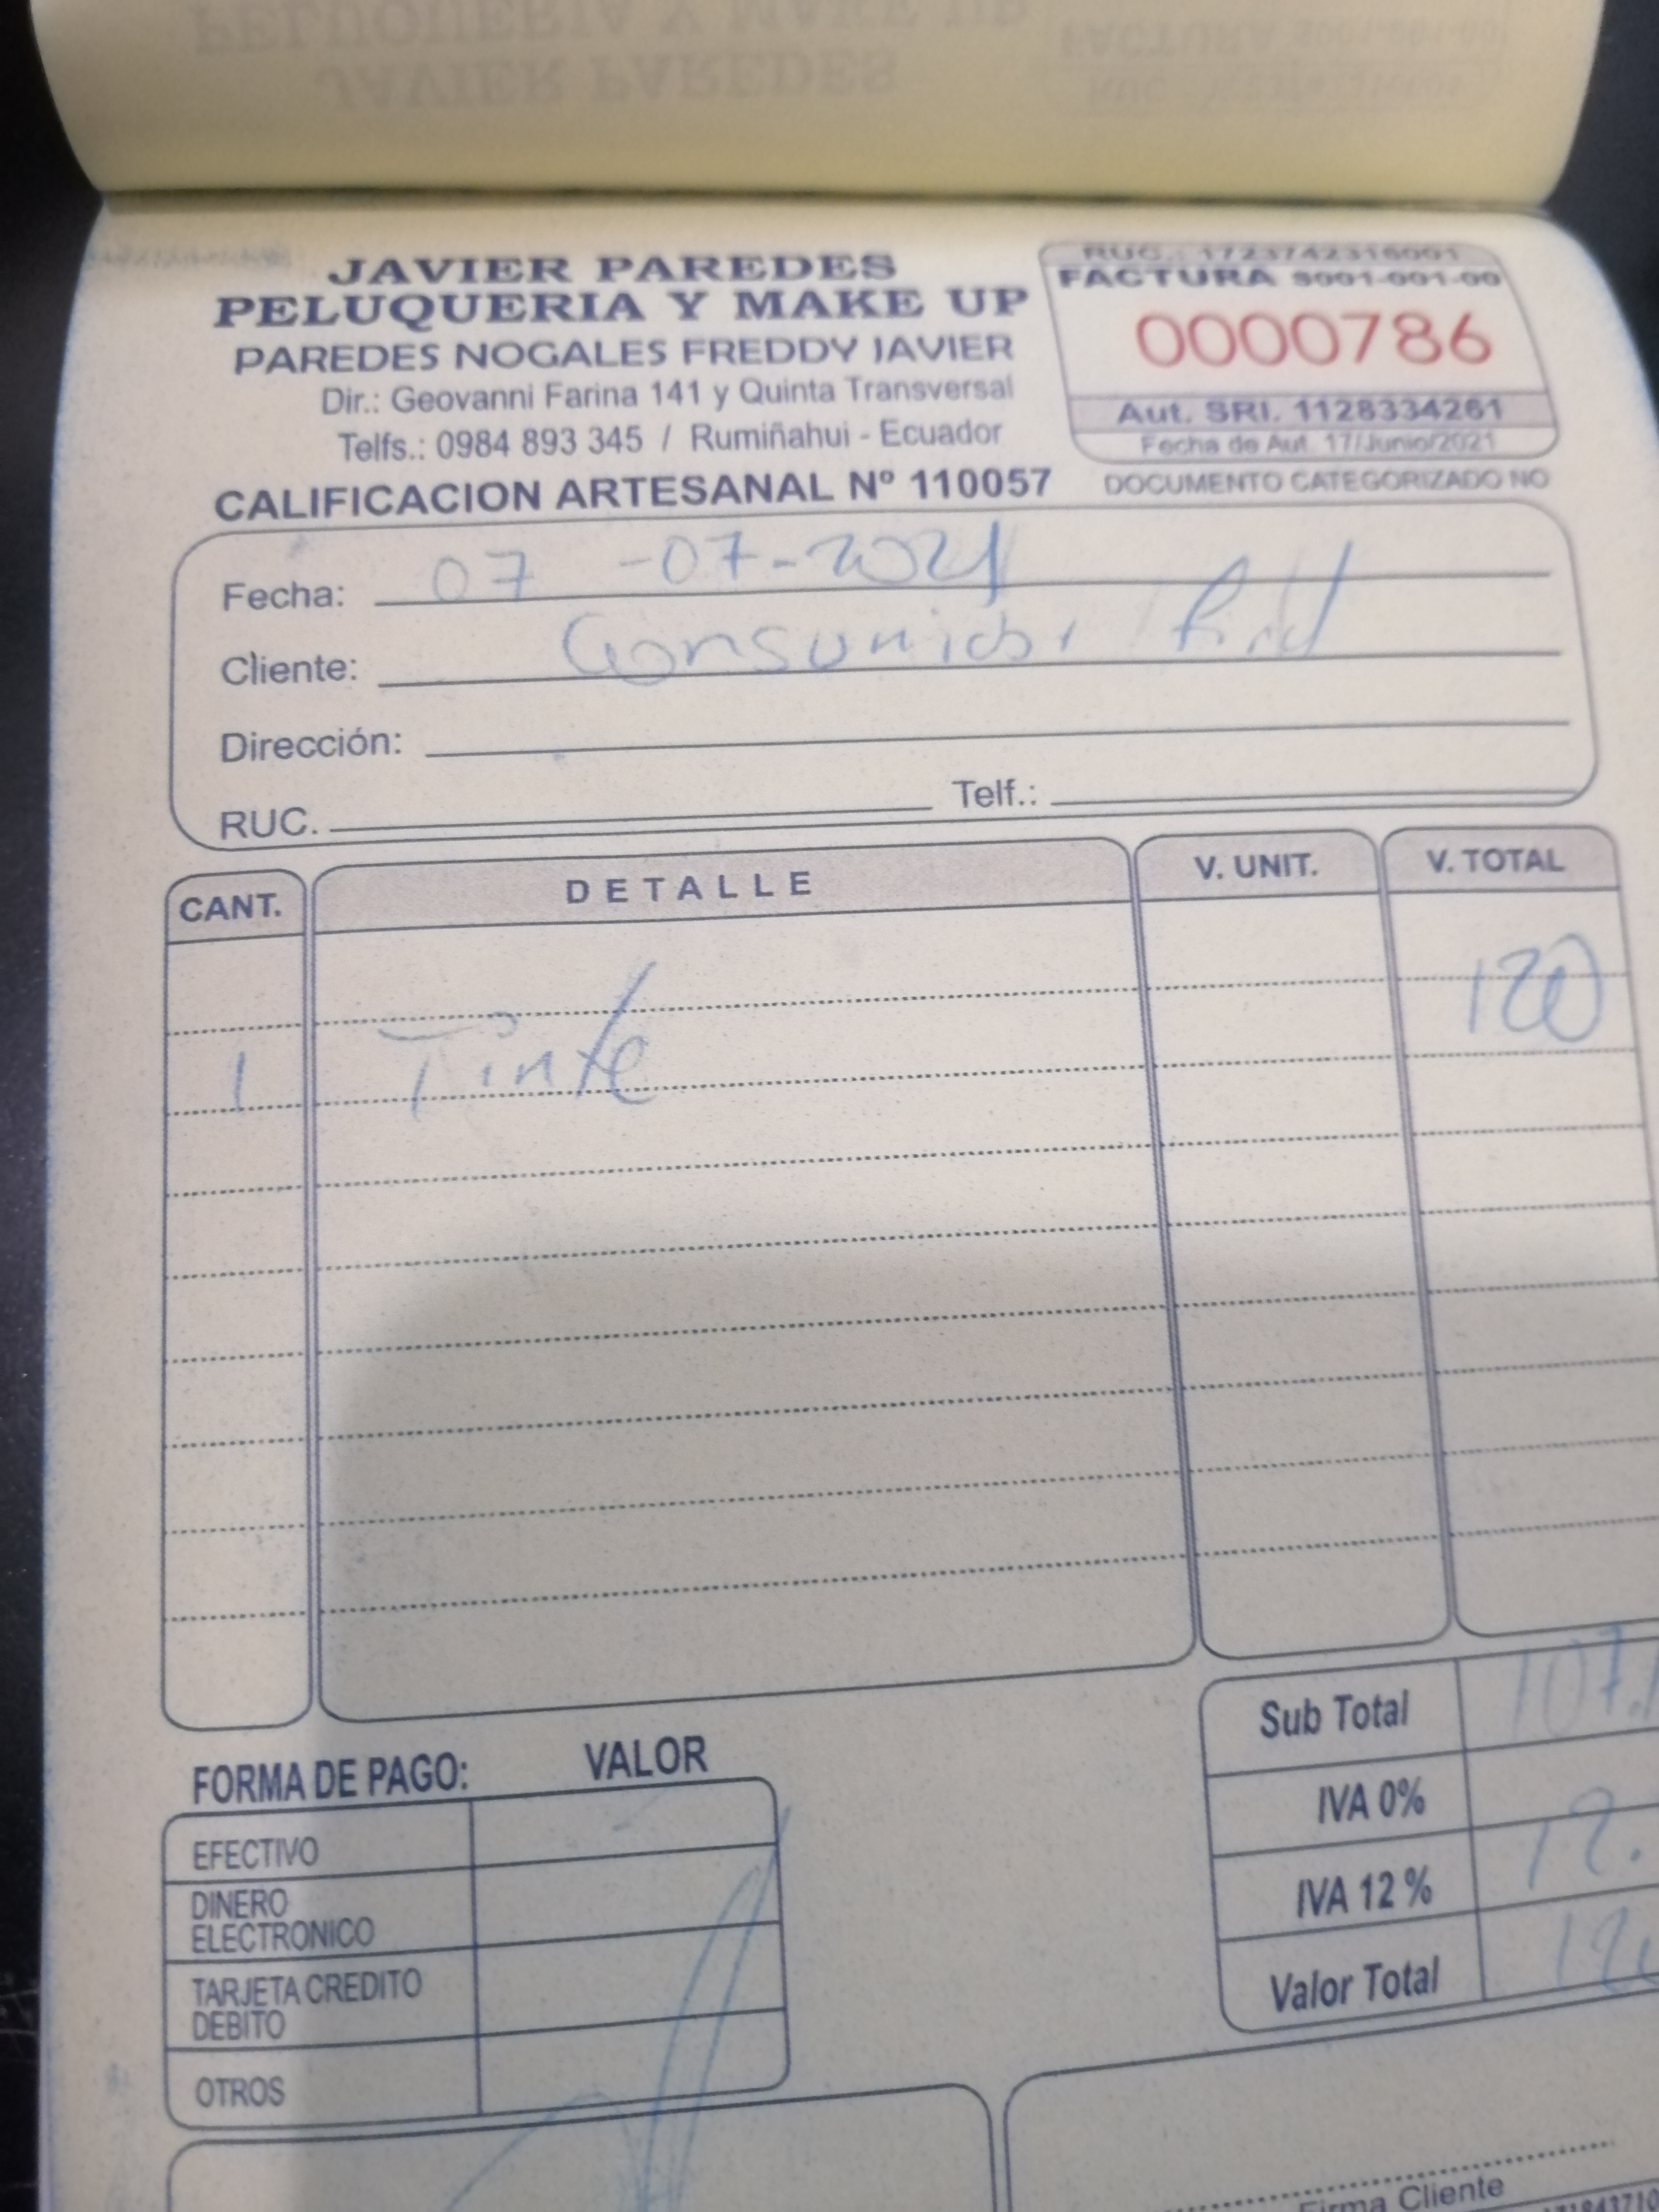 JAVIER PAREDES
PELUQUERIA Y MAKE UP
PAREDES NOGALES FREDDY JAVIER
Dir.: Geovanni Farina 141 y Quinta Transversal
Telfs.: 0984 893 345 / Rumiñahui - Ecuador
CALIFICACION ARTESANAL Nº 110057
RUC.: 1723742316001
FACTURA S001-001-00
0000786
Aut. SRI. 1128334261
Fecha de Aut. 17/Junio/2021
DOCUMENTO CATEGORIZADO NO
Fecha: 07 -07-2021
Cliente: Consumidor
Dirección:
RUC. Telf.:
CANT. DETALLE V. UNIT. V. TOTAL
1 Tinte 120
Sub Total 107.
IVA 0%
IVA 12 % 12.
Valor Total
FORMA DE PAGO: VALOR
EFECTIVO
DINERO
ELECTRONICO
TARJETA CREDITO
DEBITO
OTROS
Firma Cliente